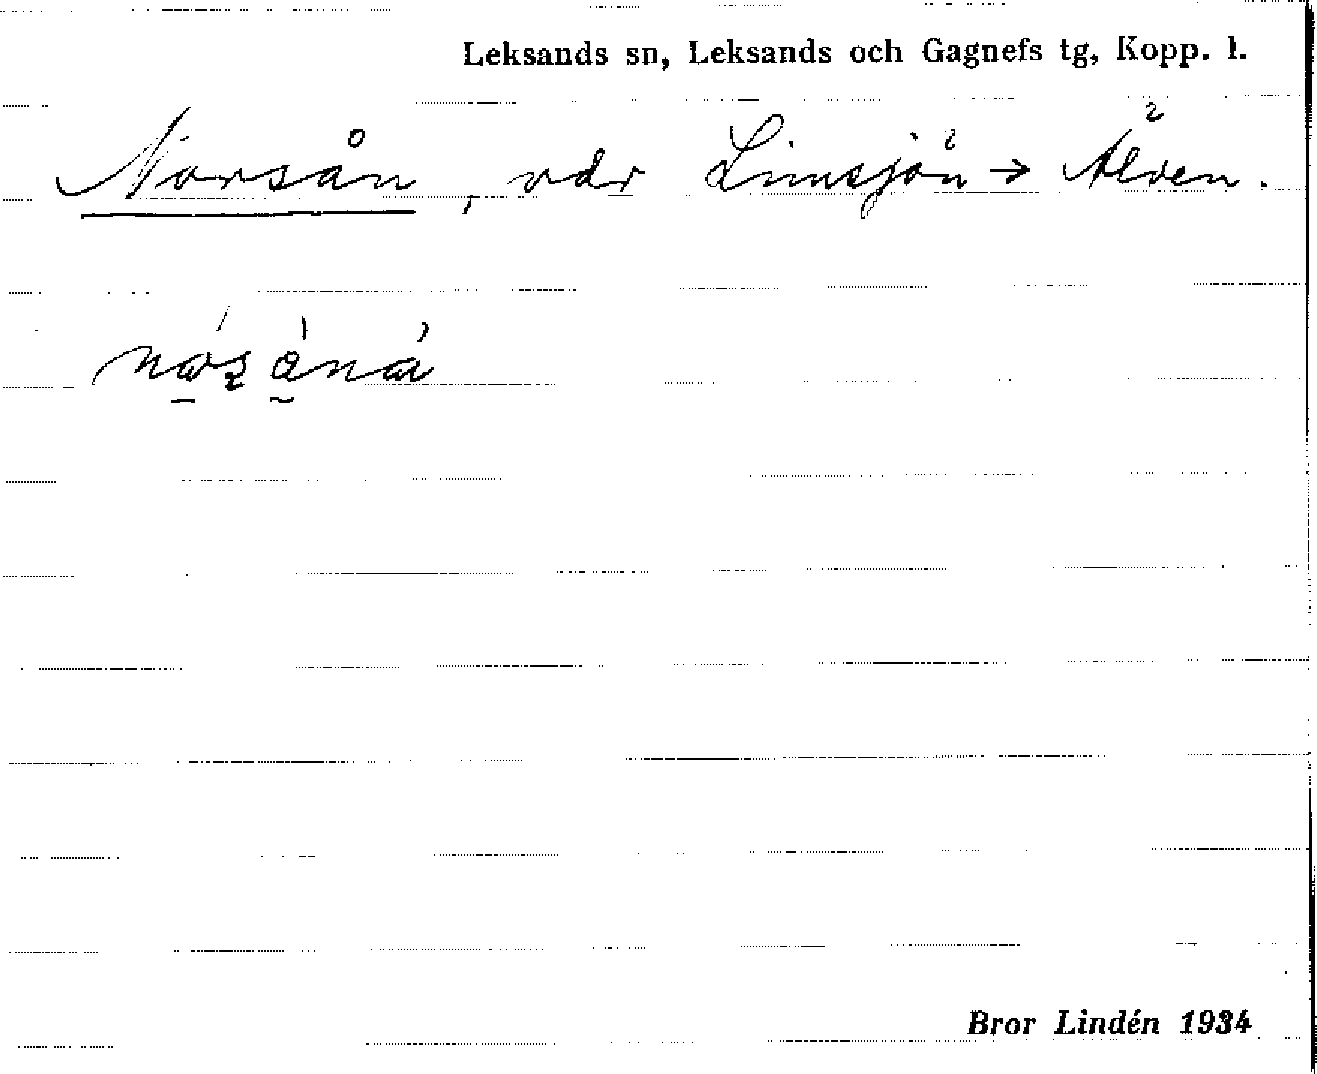 Leksands sn, Leksands och Gagnefs tg, Kopp. l.
Norsån, vdr Limsjön → Älven.
Bror Lindén 1934